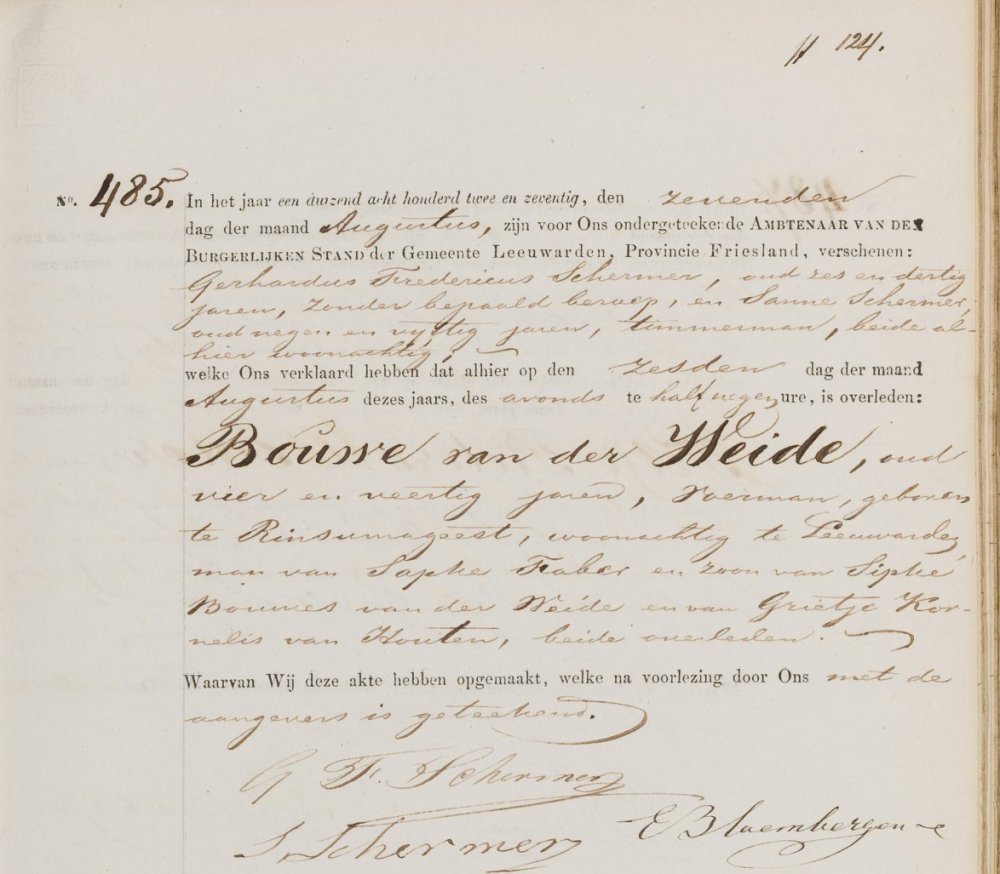 # 124.
No. 485. In het jaar een duizend acht honderd twee en zeventig, den zevenden
dag der maand Augustus, zijn voor Ons ondergeteekende AMBTENAAR VAN DEN
BURGERLIJKEN STAND der Gemeente Leeuwarden, Provincie Friesland, verschenen:
Gerhardus Fredericus Schermer, oud zes en dertig
jaren, zonder bepaald beroep, en Sanne Schermer,
oud negen en vijftig jaren, timmerman, beide al-
hier woonachtig,
welke Ons verklaard hebben dat alhier op den zesden dag der maand
Augustus dezes jaars, des avonds te half negen ure, is overleden:
Bouwe van der Weide, oud
vier en veertig jaren, voerman, geboren
te Rinsumageest, woonachtig te Leeuwarden,
man van Sapke Faber en zoon van Sipke
Bouwes van der Weide en van Grietje Kor-
nelis van Houten, beide overleden.
Waarvan Wij deze akte hebben opgemaakt, welke na voorlezing door Ons met de
aangevers is geteekend.
G F. Schermer
S. Schermer E Bloembergen